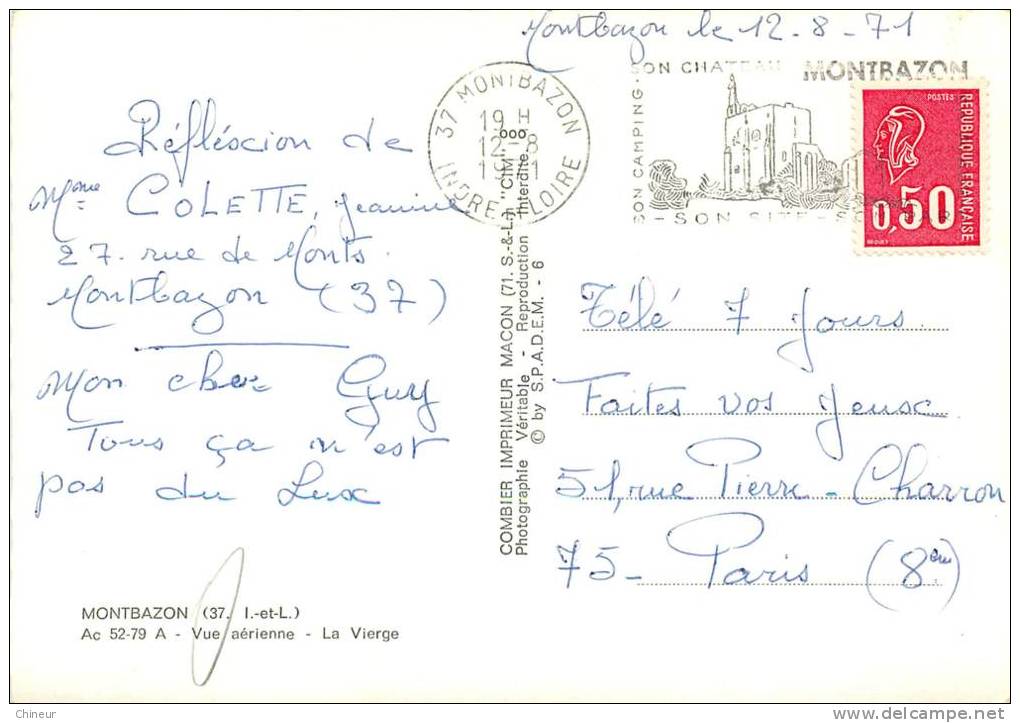 Montbazon le 12-8-71
37 MONTBAZON
19 H
12-8
INDRE-ET-LOIRE
SON CHATEAU MONTBAZON
SON CAMPING -
- SON SITE -
POSTES
REPUBLIQUE FRANÇAISE
0,50
Réfléscion de
Mme COLETTE, Jeannine
27. rue de Monts.
Montbazon (37)
Mon cher Guy
Tous ça n'est
pas du Lux
Télé 7 Jours.
Faites vos Jeux
51, rue Pierre-Charron
75- Paris (8em)
COMBIER IMPRIMEUR MACON (71. S.-&-L.) "CIM"
Photographie Véritable - Reproduction Interdite
© by S.P.A.D.E.M. - 6
MONTBAZON (37. I.-et-L.)
Ac 52-79 A - Vue aérienne - La Vierge
Chineur
© delcampe.net